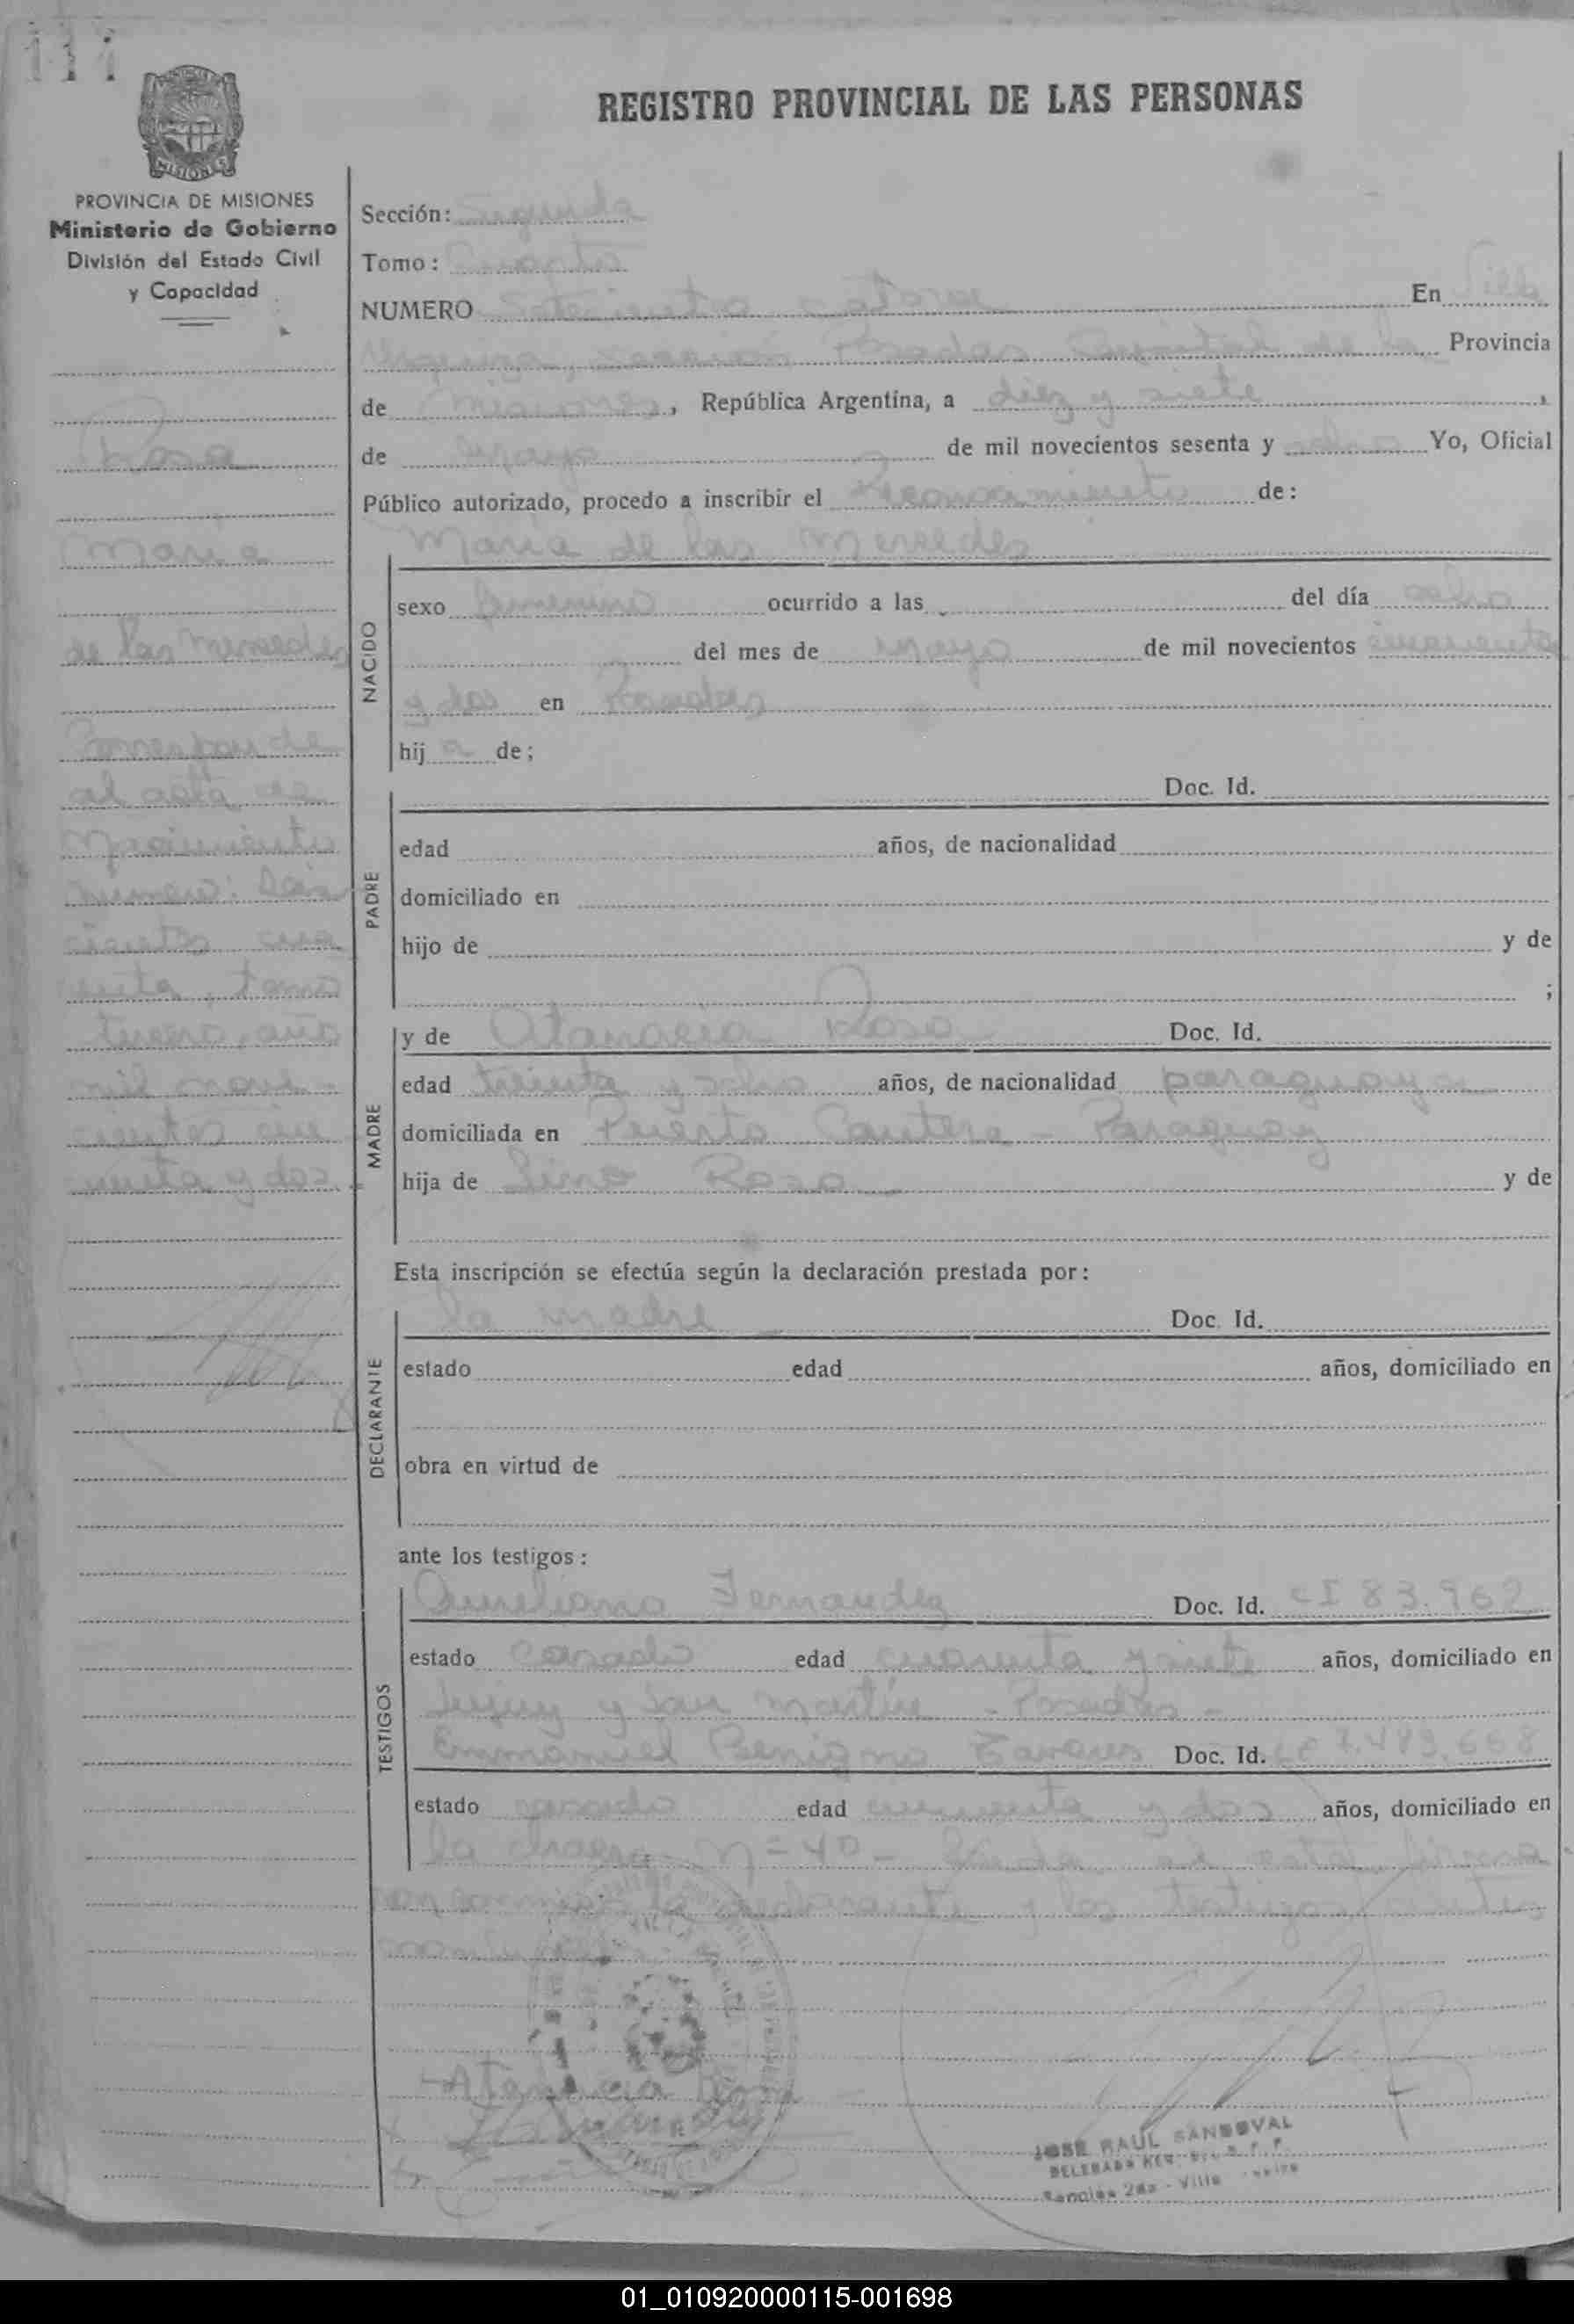 111
REGISTRO PROVINCIAL DE LAS PERSONAS
MISIONES
PROVINCIA DE MISIONES
Ministerio de Gobierno
División del Estado Civil
y Capacidad
Rosa
Maria
de las Mercedes
Corresponde
al acta de
Nacimiento
numero: Seis
cientos cua
renta, tomo
tercero, año
mil nove-
cientos cin
cuenta y dos.
Sección: Segunda
Tomo: Cuarto
NUMERO Setecientos catorce En Villa
Urquiza, sección Posadas Capital de la Provincia
de Misiones, República Argentina, a diez y siete,
de mayo de mil novecientos sesenta y ocho Yo, Oficial
Público autorizado, procedo a inscribir el Reconocimiento de:
Maria de las Mercedes
NACIDO
sexo femenino ocurrido a las del día ocho
del mes de mayo de mil novecientos cincuenta
y dos en Posadas
hij a de;
PADRE
Doc. Id.
edad años, de nacionalidad
domiciliado en
hijo de y de
;
MADRE
y de Atanacia Rosa Doc. Id.
edad treinta y ocho años, de nacionalidad paraguaya
domiciliada en Puerto Cantera - Paraguay
hija de Lino Rosa y de
Esta inscripción se efectúa según la declaración prestada por:
DECLARANTE
la madre Doc. Id.
estado edad años, domiciliado en
obra en virtud de
ante los testigos:
TESTIGOS
Aureliano Fernandez Doc. Id. CI 83.962
estado casado edad cuarenta y siete años, domiciliado en
Jujuy y San Martin - Posadas -
Emmanuel Benigno Doc. Id. LE 7.483.668
estado casado edad cincuenta y dos años, domiciliado en
la chacra Nº 40 - Leida el acta firma
conmigo la declarante y los testigos
Atanacia Rosa
JOSE RAUL SANDOVAL
DELEGADO
Sección 2da - Villa
01_010920000115-001698